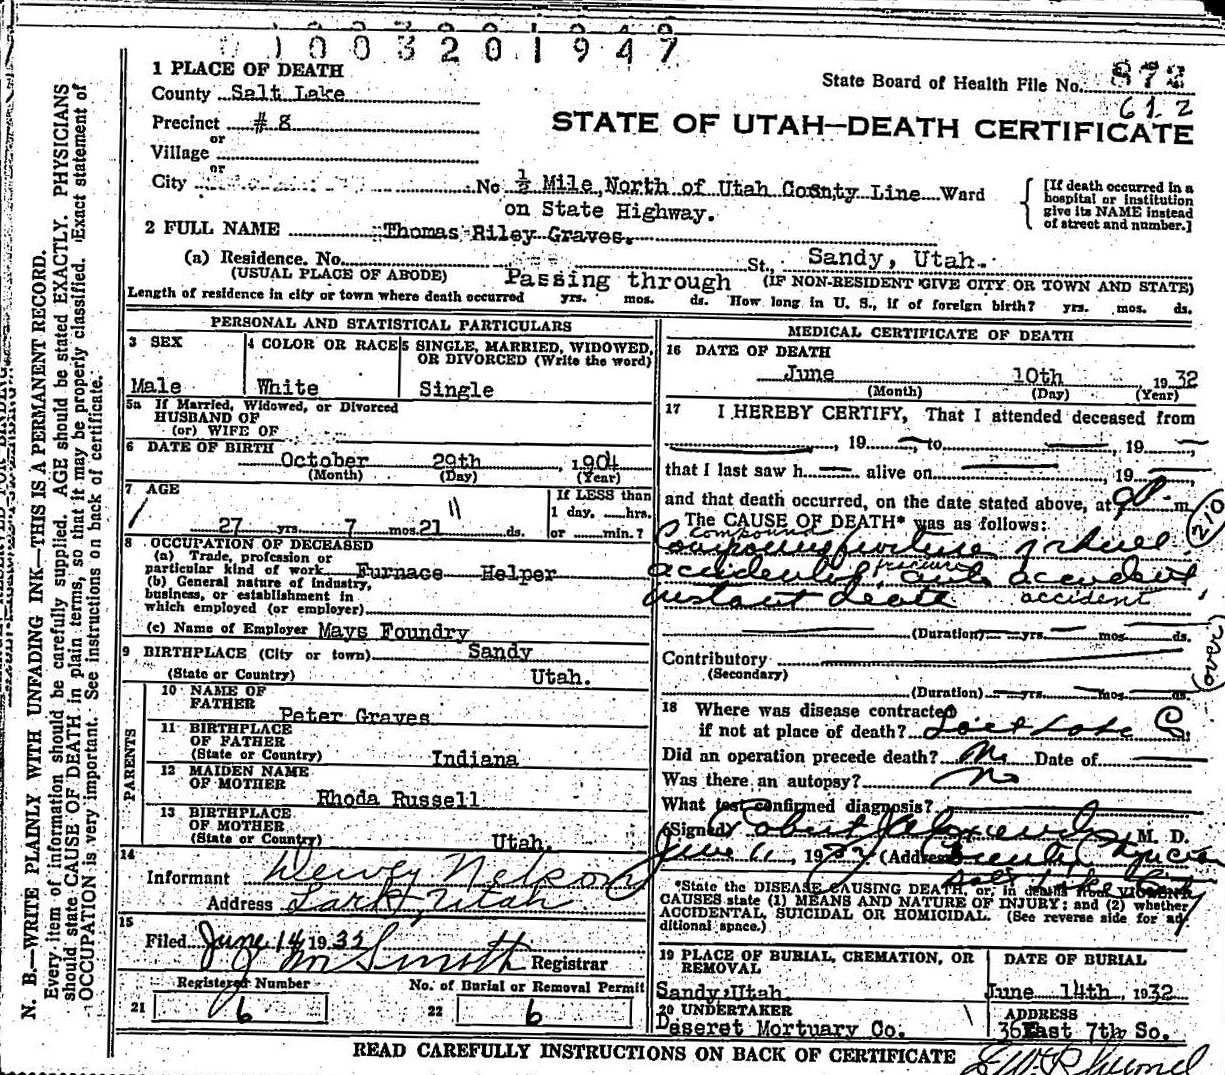 1003201947
1 PLACE OF DEATH
State Board of Health File No. 872
County Salt Lake
612
Precinct #8
STATE OF UTAH—DEATH CERTIFICATE
or
Village
or
City No ½ Mile North of Utah County Line Ward
[If death occurred in a hospital or institution give its NAME instead of street and number.]
on State Highway.
2 FULL NAME Thomas Riley Graves.
(a) Residence. No. St. Sandy, Utah.
(USUAL PLACE OF ABODE) Passing through (IF NON-RESIDENT GIVE CITY OR TOWN AND STATE)
Length of residence in city or town where death occurred yrs. mos. ds. How long in U. S., if of foreign birth? yrs. mos. ds.
PERSONAL AND STATISTICAL PARTICULARS
3 SEX
4 COLOR OR RACE
5 SINGLE, MARRIED, WIDOWED, OR DIVORCED (Write the word)
Male
White
Single
5a If Married, Widowed, or Divorced
HUSBAND OF
(or) WIFE OF
6 DATE OF BIRTH
October 29th, 1904
(Month) (Day) (Year)
7 AGE
If LESS than
1 day, hrs.
27 yrs. 7 mos. 21 ds.
11
or min.?
8 OCCUPATION OF DECEASED
(a) Trade, profession or
particular kind of work Furnace Helper
(b) General nature of industry,
business, or establishment in
which employed (or employer)
(c) Name of Employer Mays Foundry
9 BIRTHPLACE (City or town) Sandy
(State or Country) Utah.
PARENTS
10 NAME OF
FATHER Peter Graves
11 BIRTHPLACE
OF FATHER
(State or Country) Indiana
12 MAIDEN NAME
OF MOTHER
Rhoda Russell
13 BIRTHPLACE
OF MOTHER
(State or Country) Utah.
14
Informant Dewey Nelson
Address Lark, Utah
15
Filed June 14 1932
J M Smith Registrar
Registered Number
No. of Burial or Removal Permit
21 6
22 6
MEDICAL CERTIFICATE OF DEATH
16 DATE OF DEATH
June 10th 1932
(Month) (Day) (Year)
17 I HEREBY CERTIFY, That I attended deceased from
, 19 to , 19
that I last saw h alive on , 19
and that death occurred, on the date stated above, at 9P m.
The CAUSE OF DEATH* was as follows:
210
compound
Compound fracture of skull
fracture
accidental, auto accident
instant death accident
(Duration) yrs. mos. ds.
(over)
Contributory
(Secondary)
(Duration) yrs. mos. ds.
18 Where was disease contracted
if not at place of death? Salt Lake C.
Did an operation precede death? No Date of
Was there an autopsy? No
What test confirmed diagnosis?
(Signed) Robert M. D.
June 11, 1932 (Address) County Physician
Salt Lake City
*State the DISEASE CAUSING DEATH, or, in deaths from VIOLENT
CAUSES state (1) MEANS AND NATURE OF INJURY; and (2) whether
ACCIDENTAL, SUICIDAL OR HOMICIDAL. (See reverse side for ad-
ditional space.)
19 PLACE OF BURIAL, CREMATION, OR
REMOVAL
DATE OF BURIAL
Sandy, Utah.
June 14th, 1932
20 UNDERTAKER
ADDRESS
Deseret Mortuary Co.
36 East 7th So.
READ CAREFULLY INSTRUCTIONS ON BACK OF CERTIFICATE
N. B.—WRITE PLAINLY WITH UNFADING INK—THIS IS A PERMANENT RECORD.
Every item of information should be carefully supplied. AGE should be stated EXACTLY. PHYSICIANS
should state CAUSE OF DEATH in plain terms, so that it may be properly classified. Exact statement of
OCCUPATION is very important. See instructions on back of certificate.